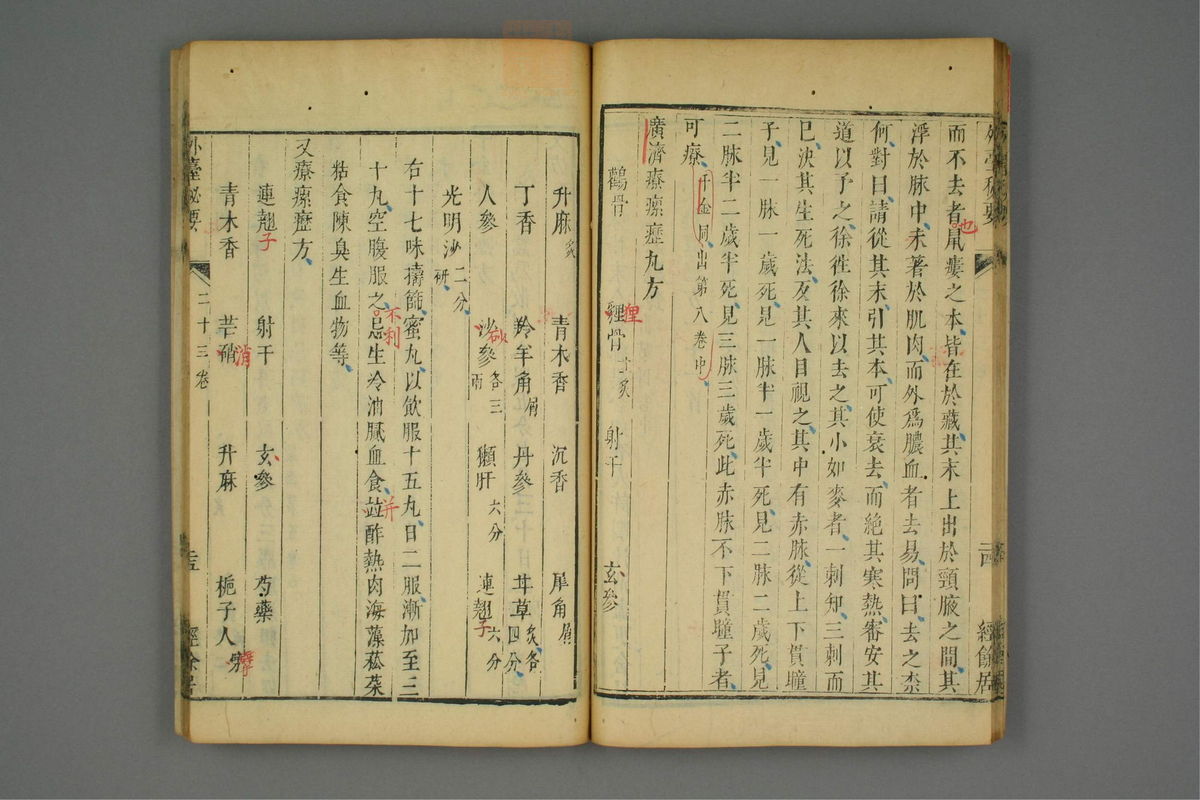 外臺秘要
而不去者鼠瘻之本皆在於藏其末上出於頸腋之間其
也
浮於脉中未著於肌肉而外爲膿血者去易問曰去之柰
何對曰請從其末引其本可使衰去而絶其寒熱審安其
道以予之徐徃徐來以去之其小如麥者一刺知三刺而
巳決其生死法反其人目視之其中有赤脉從上下貫瞳
子見一脉一歲死見一脉半一歲半死見二脉二歲死見
二脉半二歲半死見三脉三歲死此赤脉不下貫瞳子者
可療千金同出第八卷中
廣濟療瘰癧丸方
鸛骨 貍骨十炙 射干 玄參
狸
二四 經餘居
升麻炙 青木香 沉香 犀角屑
丁香 羚羊角屑 丹參 甘草炙各四分
人參 沙參各三兩 獺肝六分 連翹六分
砂 子
光明沙二分研
右十七味擣篩蜜丸以飲服十五丸日二服漸加至三
十九空腹服之忌生冷油膩血食並酢熱肉海藻菘菜
不利 并
粘食陳臭生血物等
又療瘰癧方
連翹 射干 玄參 芍藥
子
青木香 芒硝 升麻 梔子人擘
消
外臺秘要 二十三卷 二五 經餘居